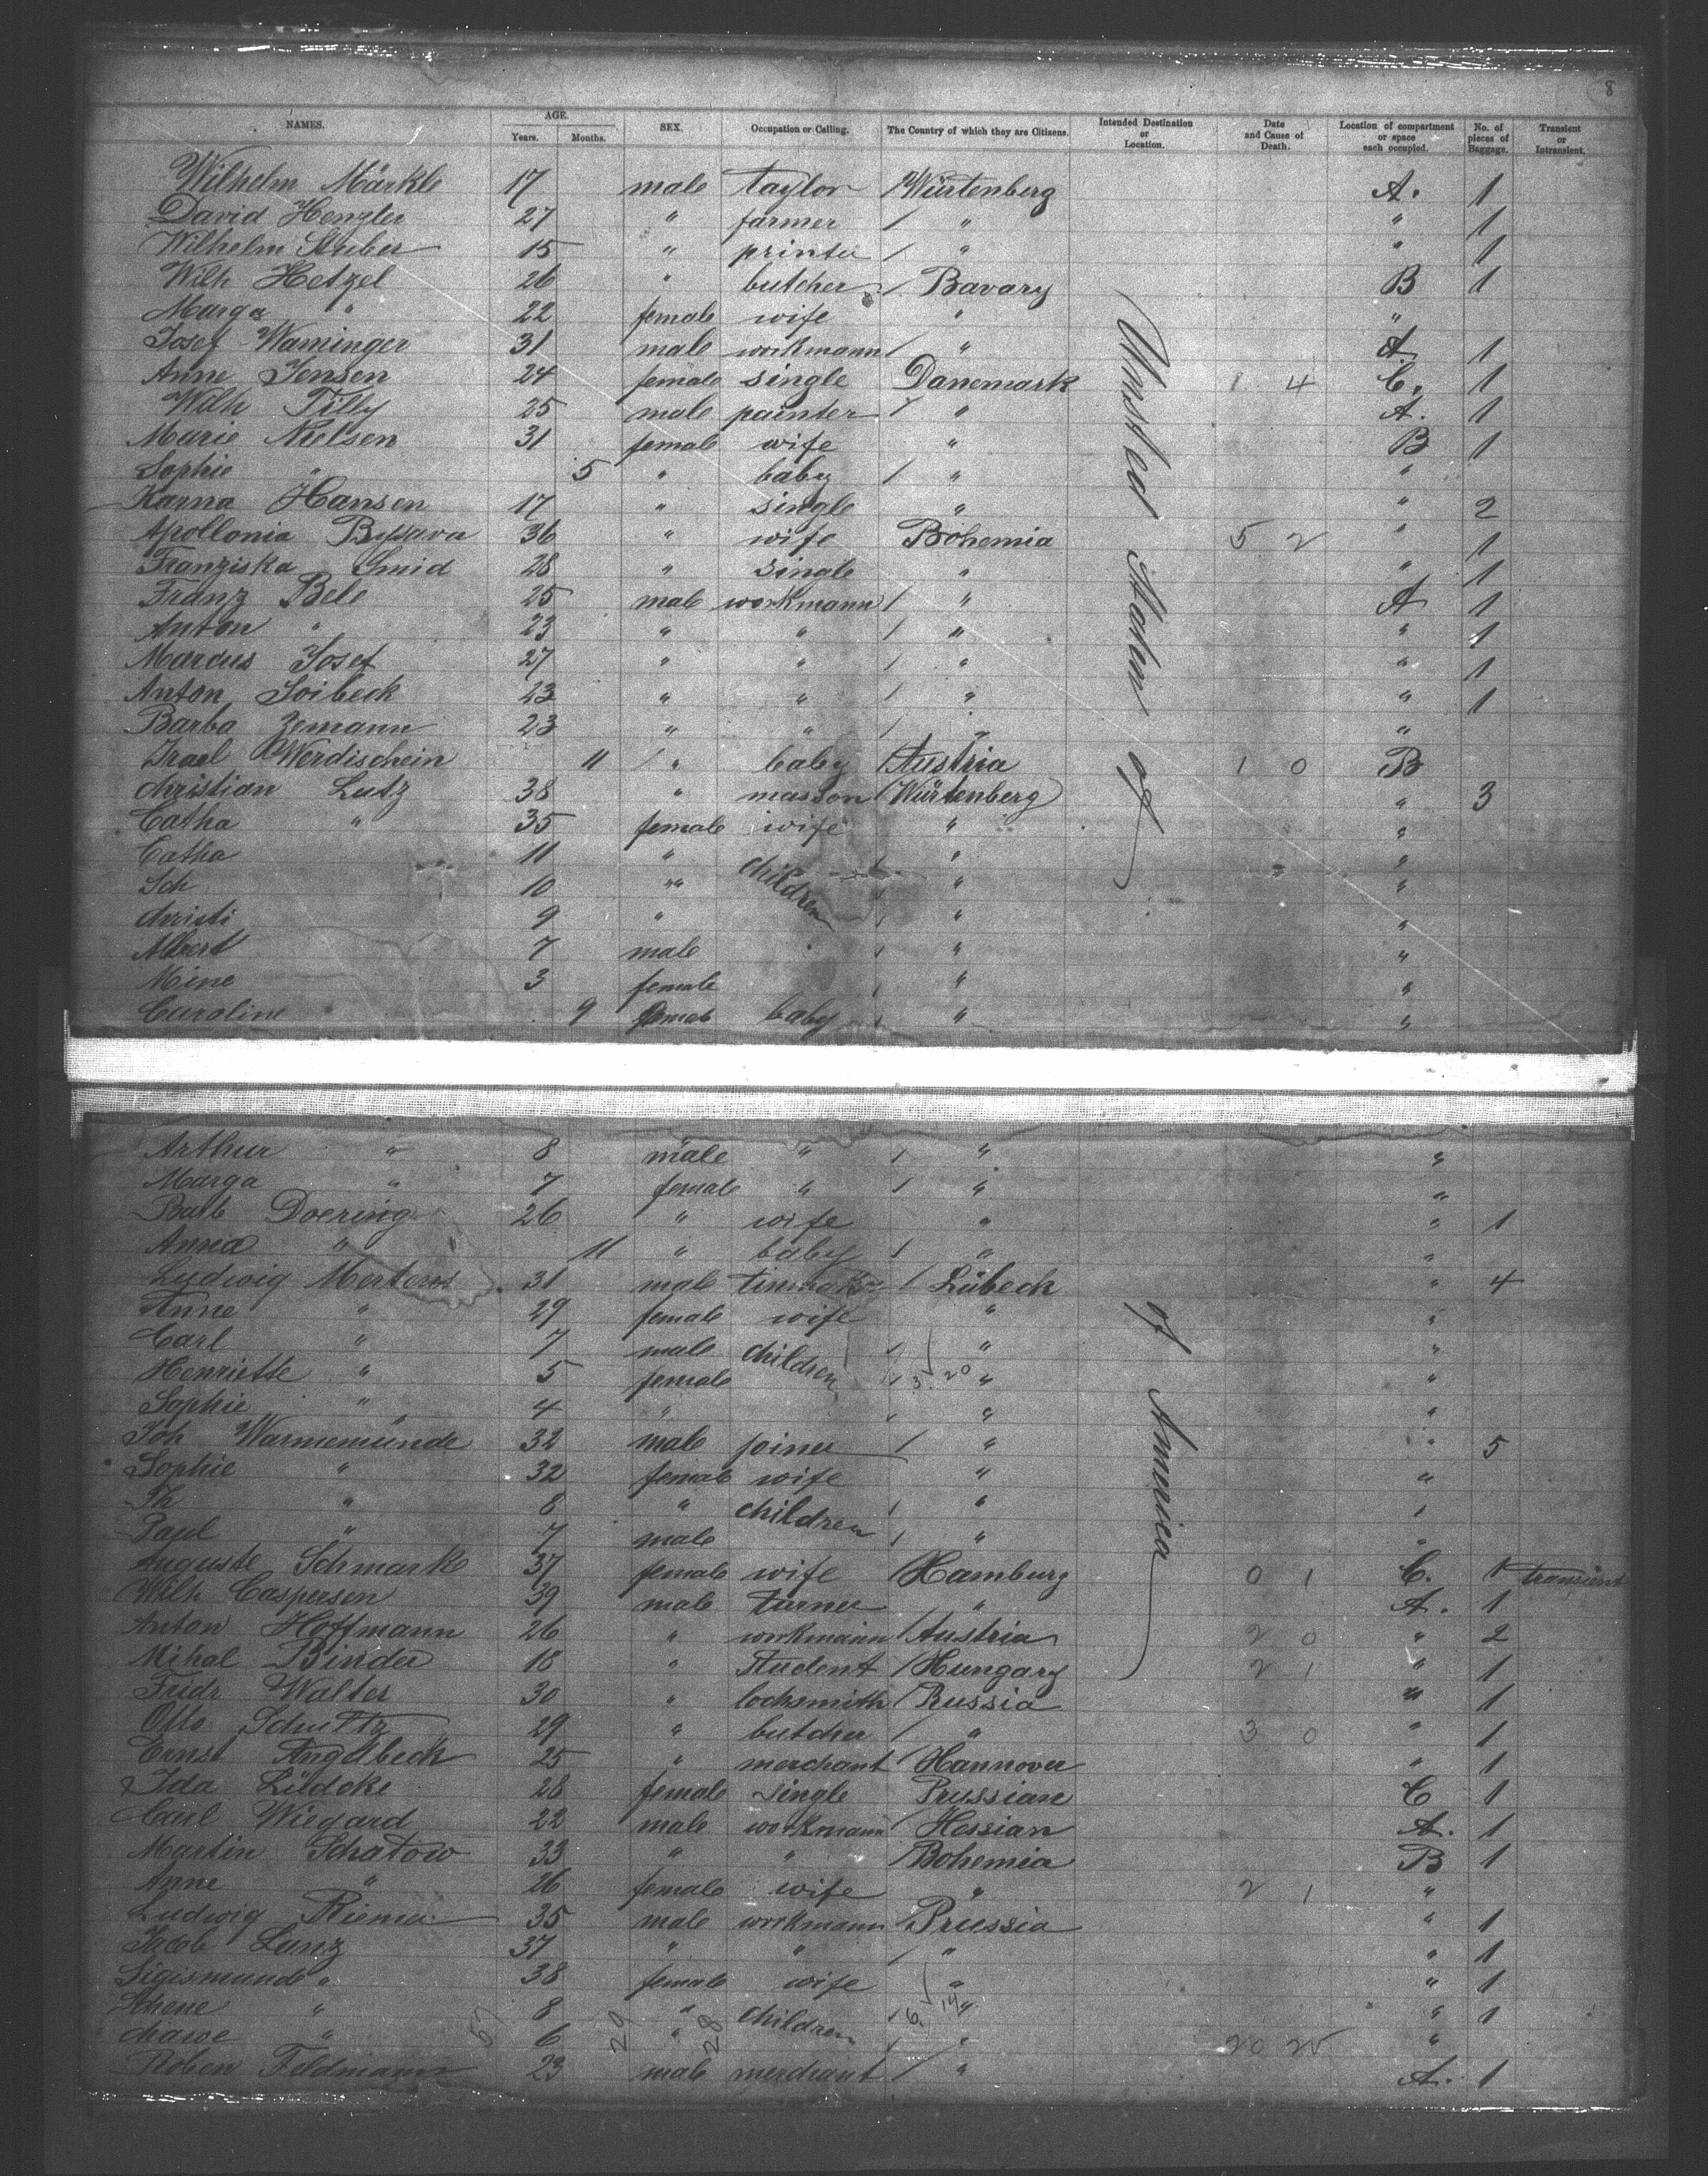 8
NAMES. AGE. Years. Months. SEX. Occupation or Calling. The Country of which they are Citizens. Intended Destination or Location. Date and Cause of Death. Location of compartment or space each occupied. No. of pieces of Baggage. Transient or Intransient.
Wilhelm Märkle 17 male taylor / Würtenberg A. 1
David Henzler 27 " farmer / " " 1
Wilhelm Stuber 15 " printer / " " 1
Wilh Hetzel 26 " butcher / Bavary B 1
Marga " 22 female wife " "
Josef Waminger 31 male workmann / " A 1
Anne Jensen 24 female single Danemark 1 4 C. 1
Wilh Tilly 25 male painter / " A. 1
Marie Nielsen 31 female wife " B 1
Sophie " 5 " baby / " "
Karna Hansen 17 " single " " 2
Apollonia 36 " wife Bohemia 5 2 " 1
Franziska Smid 28 " single " " 1
Franz Bele 25 male workmann / " A 1
Anton " 23 " " / " " 1
Marcus Josef 27 " " / " " 1
Anton Soibeck 23 " " / " " 1
Barba Zemann 23 " " / " "
Israel Werdischein 11 / " baby Austria 1 0 B
Christian Lutz 38 " masson / Würtenberg " 3
Catha " 35 female wife " "
Catha 11 " children / " "
Sch 10 "" / " "
Christi 9 " / " "
Albert 7 male / " "
Mine 3 female / " "
Caroline 9 female baby / " "
United States of
Arthur " 8 male " / " "
Marga " 7 female " / " "
Barb Doering 26 " wife " " 1
Anna " 11 " baby / " "
Ludwig Mertens 31 male tinmaker / Lübeck " 4
Anne " 29 female wife " "
Carl " 7 male children / " "
Henriette " 5 female / 3 20 " "
Sophie " 4 " / " "
Joh Warnemünde 32 male joiner / " " 5
Sophie " 32 female wife " "
Th " 8 " children / " "
Paul " 7 male / " "
Auguste Schmark 37 female wife Hamburg 0 1 C. 1 transient
Wilh Caspersen 39 male turner " A. 1
Anton Hoffmann 26 " workmann / Austria 2 0 " 2
Mihal Binder 18 " student / Hungary 2 1 " 1
Fridr Walter 30 " locksmith / Russia " 1
Otto Schultz 29 " butcher / " 3 0 " 1
Ernst Angelbeck 25 " merchant / Hannover " 1
Ida Lüdcke 28 female single Prussian C 1
Carl Wiegard 22 male workmann / Hessian A. 1
Martin Schatow 33 " " / Bohemia B 1
Anne " 26 female wife " 2 1 "
Ludwig Riemer 35 male workmann Prussia " 1
Jacob Lanz 37 " " / " " 1
Sigismunde " 38 female wife " " 1
Schene " 8 " children / 6 14 " " 1
" 6 " / " 20 25 "
57 29 28
Roben Feldmann 23 male merchant / " A. 1
of America